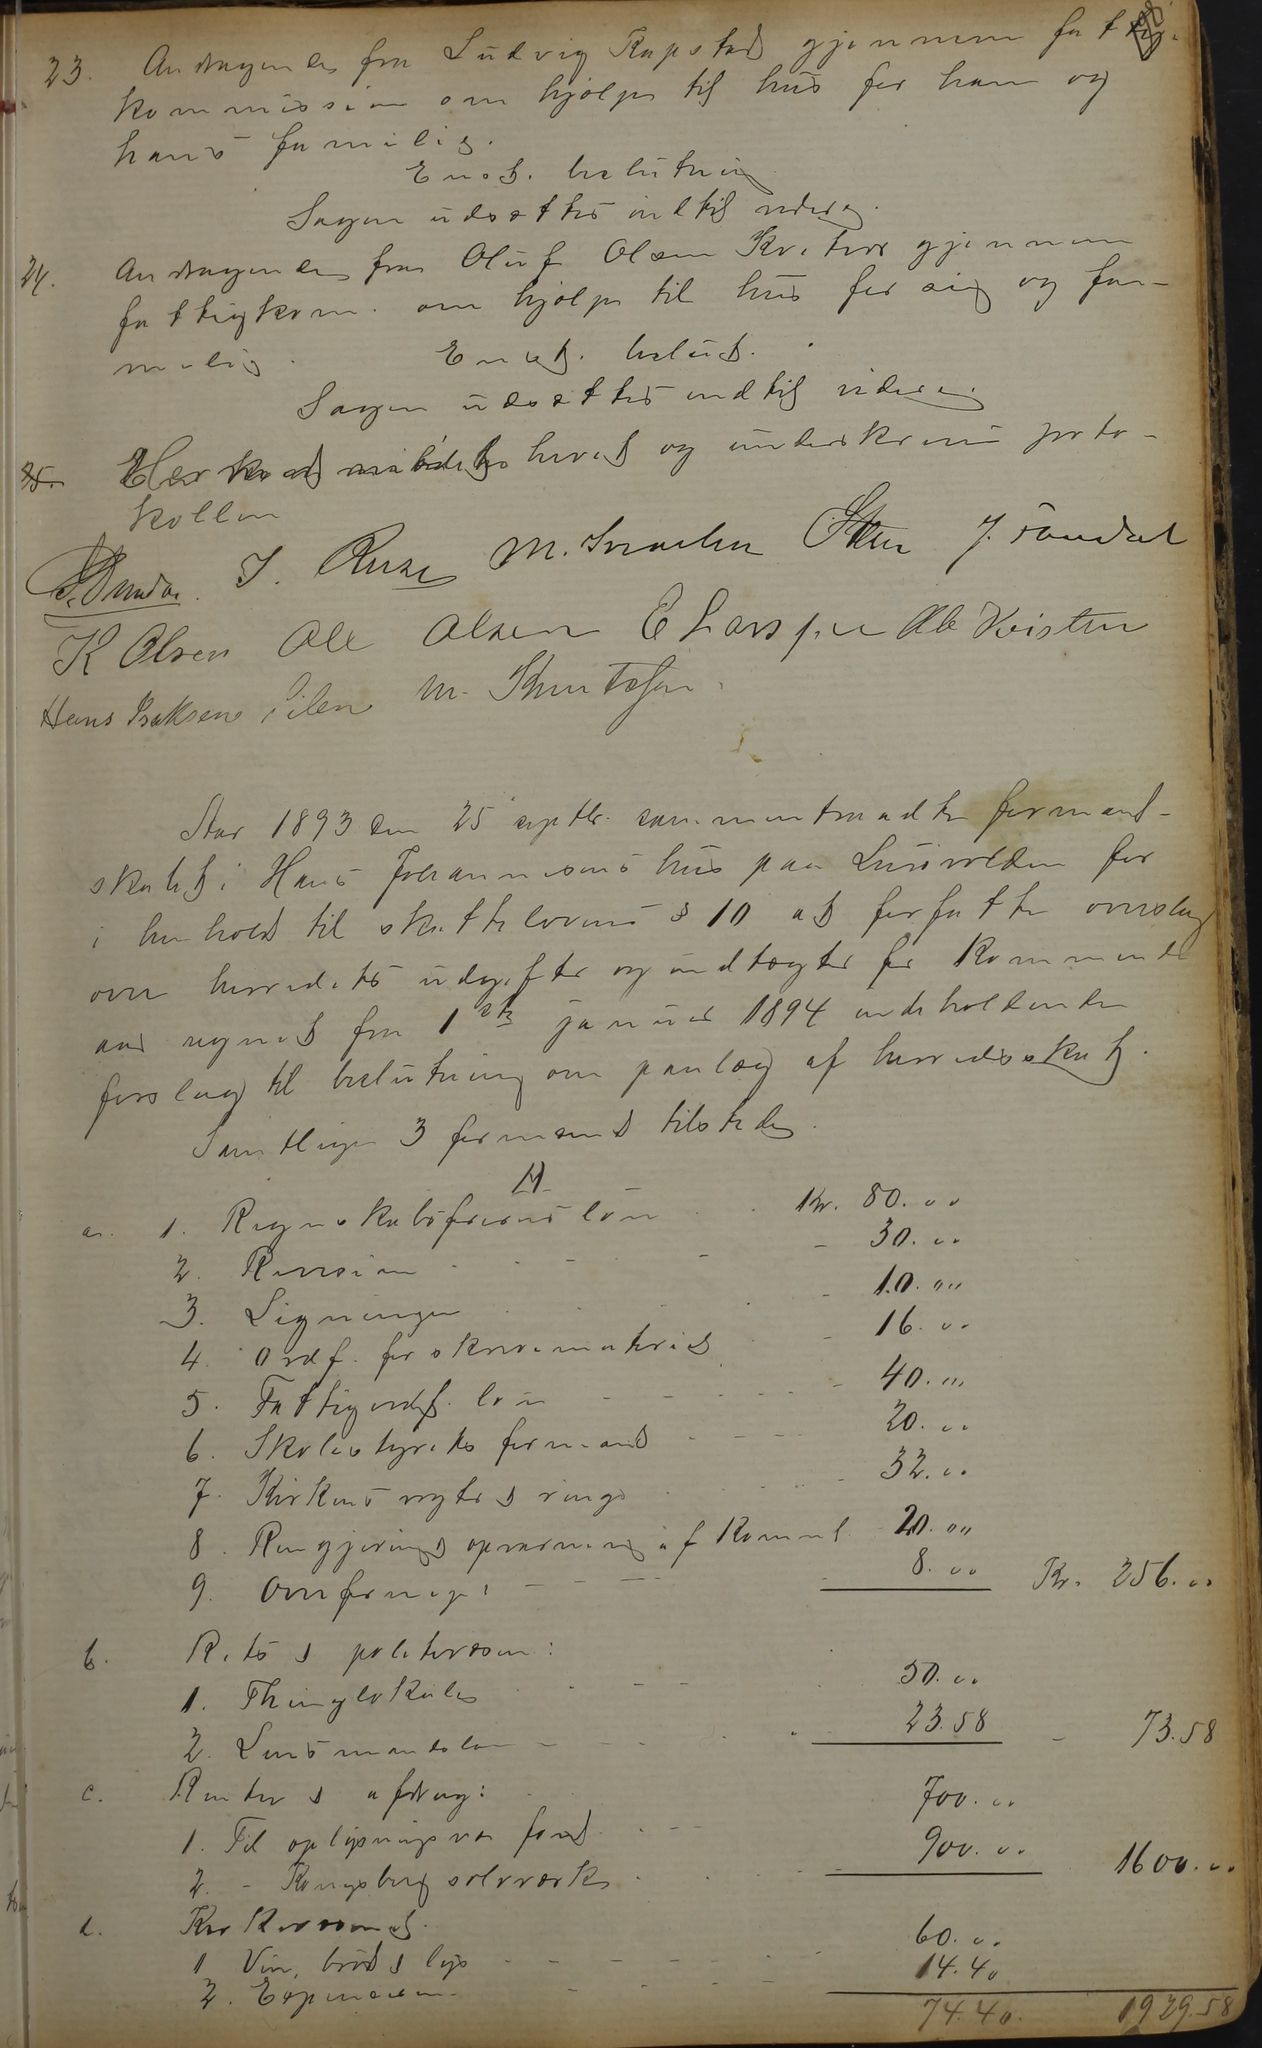 23. Andragende fra Ludvig Rapstad gjennem fattig-
kommission om hjælp til hus for ham og
hans familie.
Enst. beslutning
Sagen udsættes indtil videre.
24. Andragende fra Oluf Olsen gjennem
fattigkom. om hjælp til hus for sig og fa-
milie. Enst. beslut.
Sagen udsættes indtil videre
hævet og underskreven proto-
kollen
J. M. J. Sandal
K Olsen Ole Olsen E Ole Kvisten
Hans Isaksen M. Knutsen.
Aar 1893 den 25 septbr. sammentraadte formand-
skabet i Hans Johannesens hus paa for
i henhold til skattelovens § 10 at forfatte overslag
over herredets udgifter og indtægter for kommende
aar regnet fra 1ste januar 1894 indeholdende
forslag til beslutning om paalæg af herredsskat.
Samtlige 3 formænd tilstede.
A
a. 1. Regnskabsførerens løn Kr. 80.00
2. Revision - 30.00
3. Ligningen - 10.00
4. Ordf. for skrivemateriel - 16.00
5. Fattigordf. løn - 40.00
6. Skolestyrets formand 20.00
7. Kirkens 32.00
8. Rengjøring & opvarming af Komml. 20.00
9. 8.00 Kr. 256.00
b. Rets & politivæsen:
1. Thinglokale 50.00
2. Lensmandsløn 23.58 - 73.58
c. Renter & afdrag:
1. Til oplysningsvæ. fond 700.00
2. - Kongsberg sølvværk 900.00 1600.00
d. Kirkevæsenet.
1 Vin, brød & lys 60.00
2. 14.40
74.40 1929.58